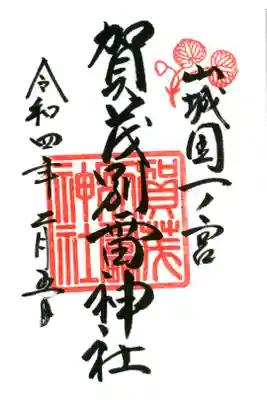 山城国一ノ宮
賀茂別雷神社
令和四年二月五日
賀茂別雷神社